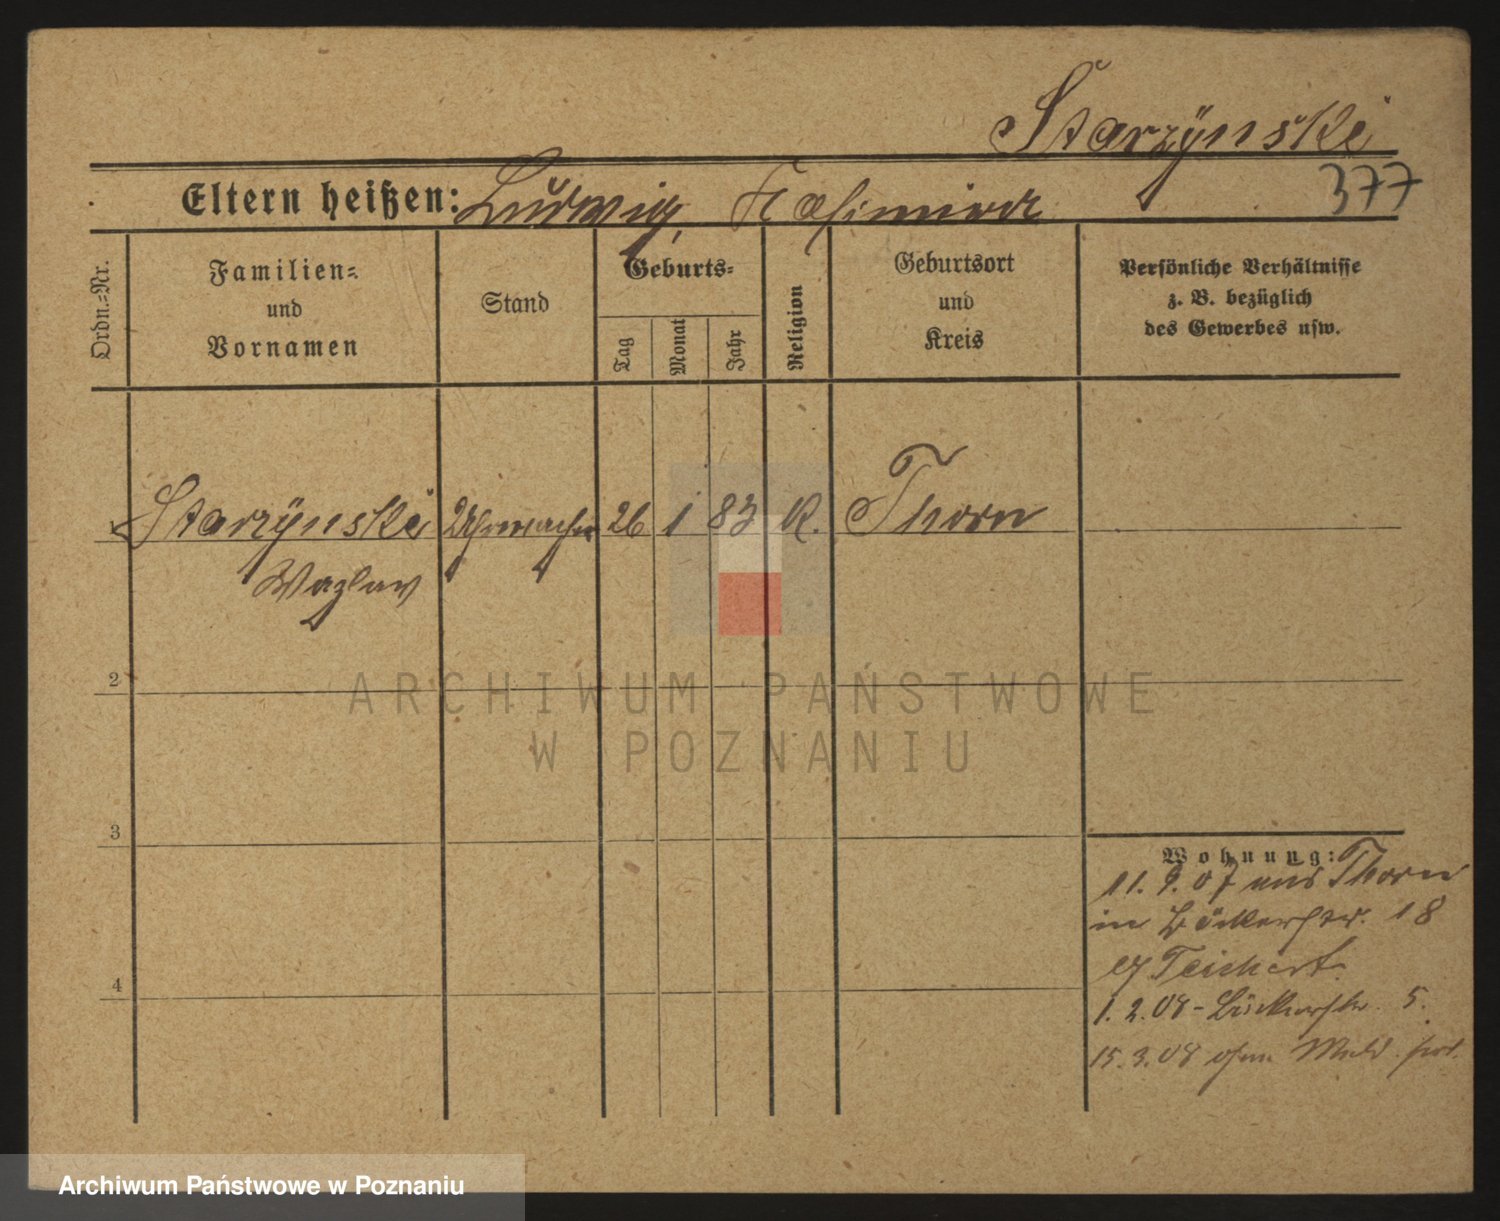 Starzÿnski
377
Eltern heißen: Ludwig, Kasimira
Ordn.=Nr.
Familien=
und
Vornamen
Stand
Geburts=
Tag
Monat
Jahr
Religion
Geburtsort
und
Kreis
Persönliche Verhältnisse
z. B. bezüglich
des Gewerbes usw.
1 Starzÿnski Uhrmacher 26 1 83 K. Thorn
Wazlav
2
3
4
Wohnung:
11. 9. 07 aus Thorn
in Bäckerstr. 18
Teichert.
1. 2. 08 - Bäckerstr. 5.
15. 3. 08 ohne Meld. fort.
ARCHIWUM PAŃSTWOWE
W POZNANIU
Archiwum Państwowe w Poznaniu